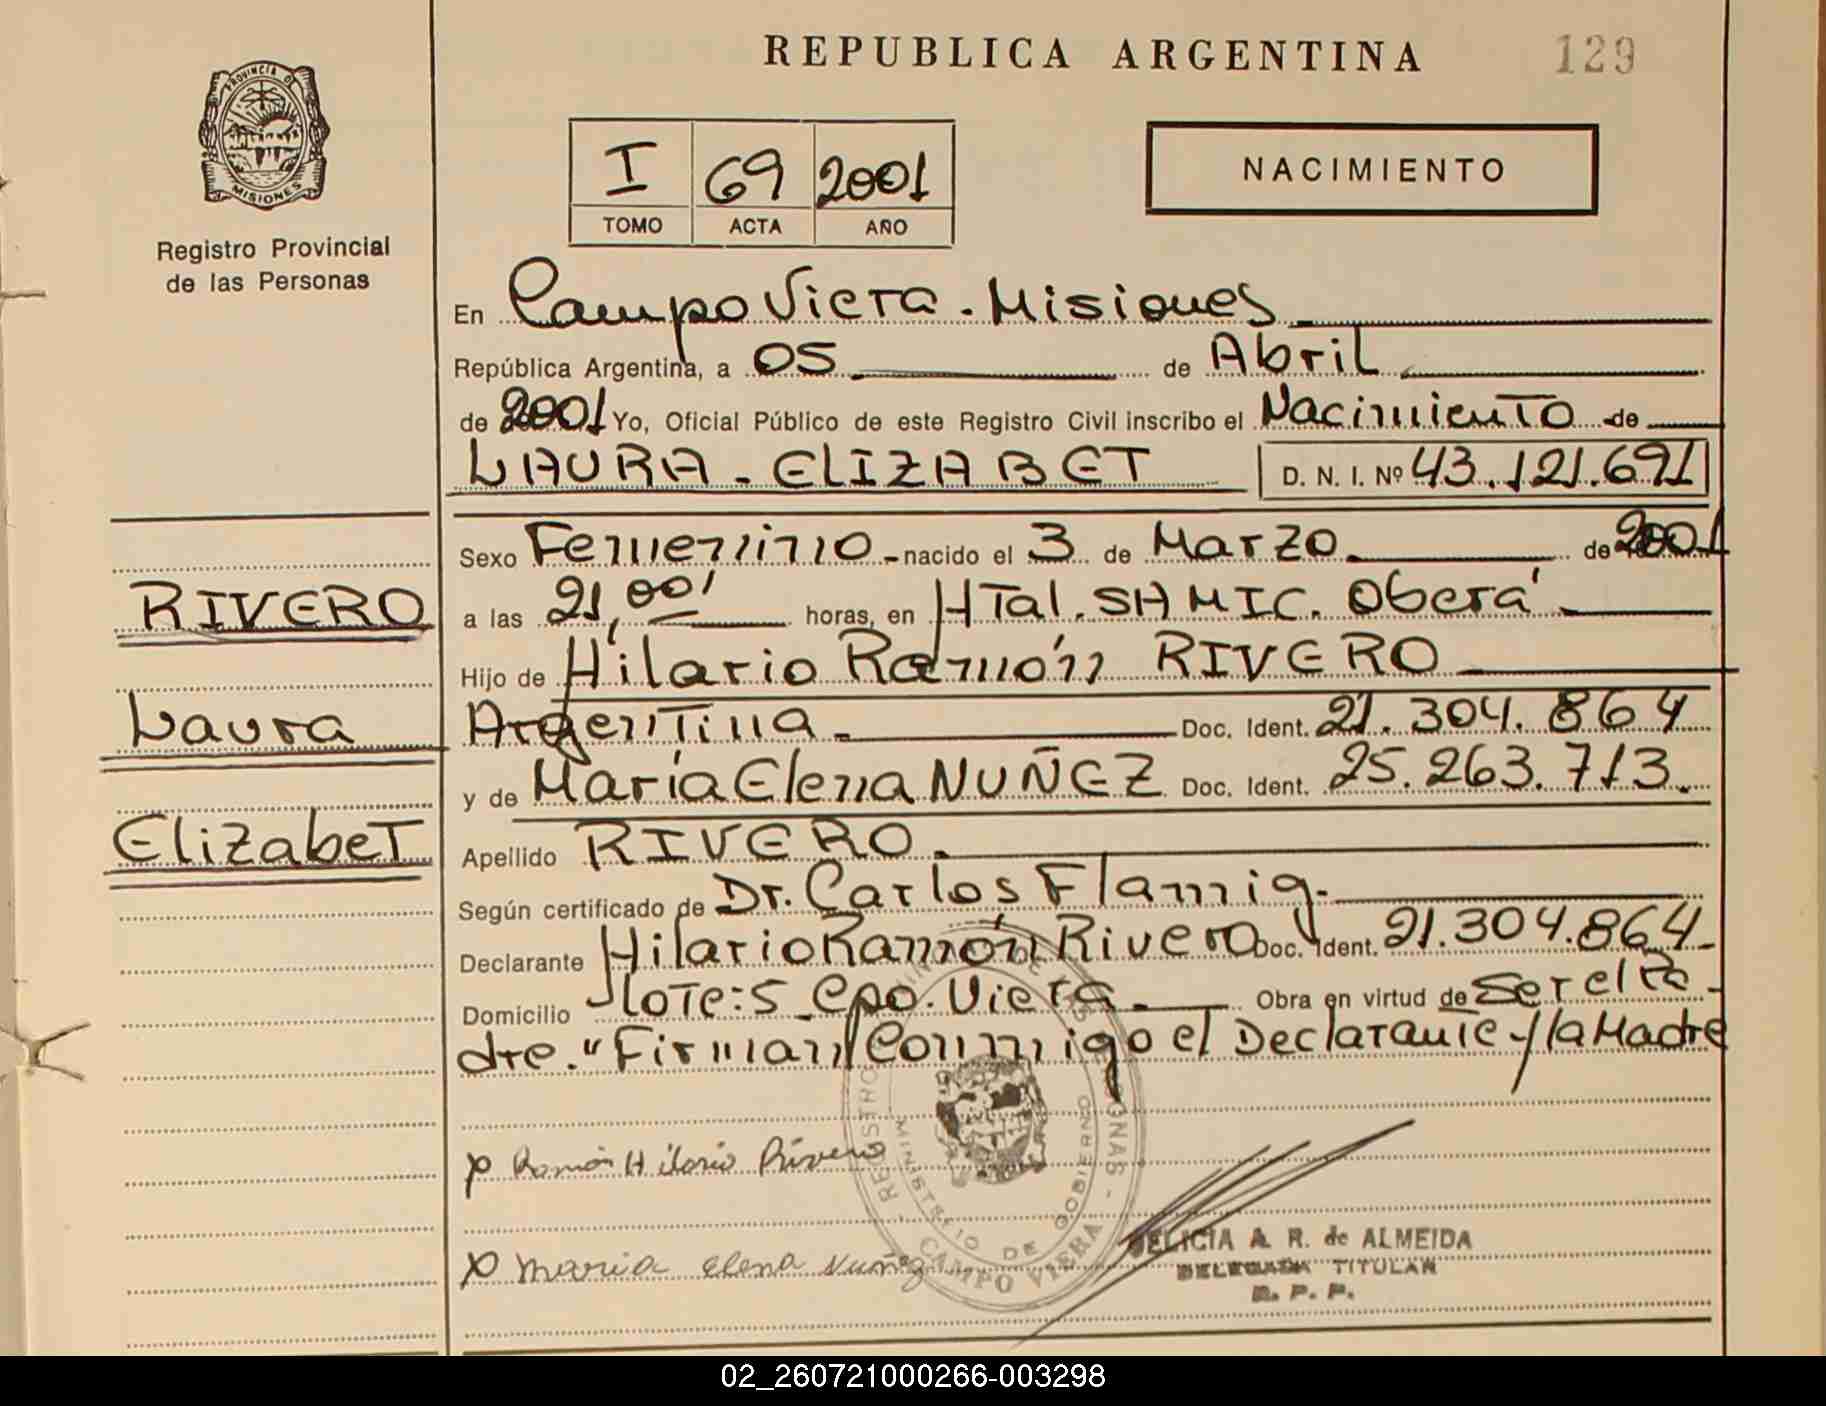 REPUBLICA ARGENTINA
129
PROVINCIA DE
MISIONES
Registro Provincial
de las Personas
I 69 2001
TOMO ACTA AÑO
NACIMIENTO
En Campo Viera - Misiones
República Argentina, a 05 de Abril
de 2001 Yo, Oficial Público de este Registro Civil inscribo el Nacimiento de
LAURA - ELIZABET D. N. I. Nº 43.121.691
Sexo Femenino - nacido el 3 de Marzo de 2001
a las 21,00' horas, en HTal. SAMIC. Oberá
Hijo de Hilario Ramón RIVERO
Argentina Doc. Ident. 21.304.864
y de María Elena NUÑEZ Doc. Ident. 25.263.713.
Apellido RIVERO.
Según certificado de Dr. Carlos Flamig.
Declarante Hilario Ramón Rivero Doc. Ident. 21.304.864
Domicilio lote: 5 Cpo. Viera Obra en virtud de Ser el Pa-
dre. "Firman Conmigo el Declarante y la Madre
RIVERO
Laura
Elizabet
x Ramón Hilario Rivero
x maria elena Nuñez
MINISTERIO DE GOBIERNO
CAMPO VIERA
DELICIA A. R. de ALMEIDA
DELEGADA TITULAR
R. P. P.
02_260721000266-003298